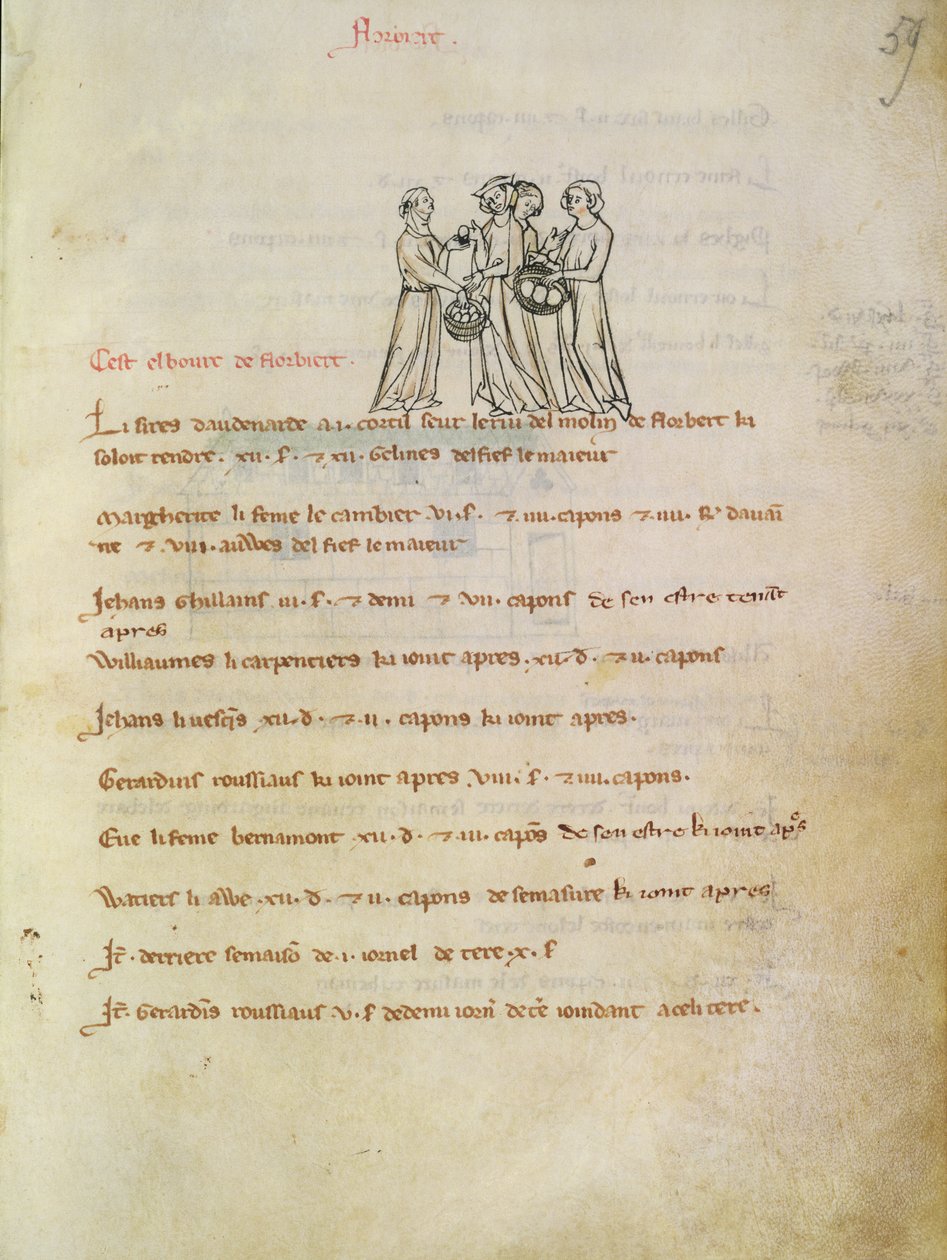 59
C'est el bourc de Florbierc.
Li sires daudenarde a .i. cortil seur le riu del molin de Florberc ki
soloit rendre .xii. s. et .xii. Gelines del fief le maieur
Margherite li feme le cambier .vi. s. et .iiii. capons et .iiii. davai
ne et .viii. auwes del fief le maieur
Jehans Ghillains iii. s. et demi et vii. capons de sen estre tenant
apres
Williaumes li carpentiers ki ioint apres .xii. d. et ii capons
Jehans li vesq's xii. d. et .ii. capons ki ioint apres.
Gerardins roussiaus ki ioint apres .viii. s. et iiii. capons.
Eve li feme bernamont xii. d. et .iii. capos de sen estre ki ioint apres
Watiers li awe .xii. d. et ii. capons de se masure ki ioint apres
It. derriere se maiso de .i. iornel de tere .x. s
It. Gerardins roussiaus v. s de demi iorn de tere ioindant a celi tere.